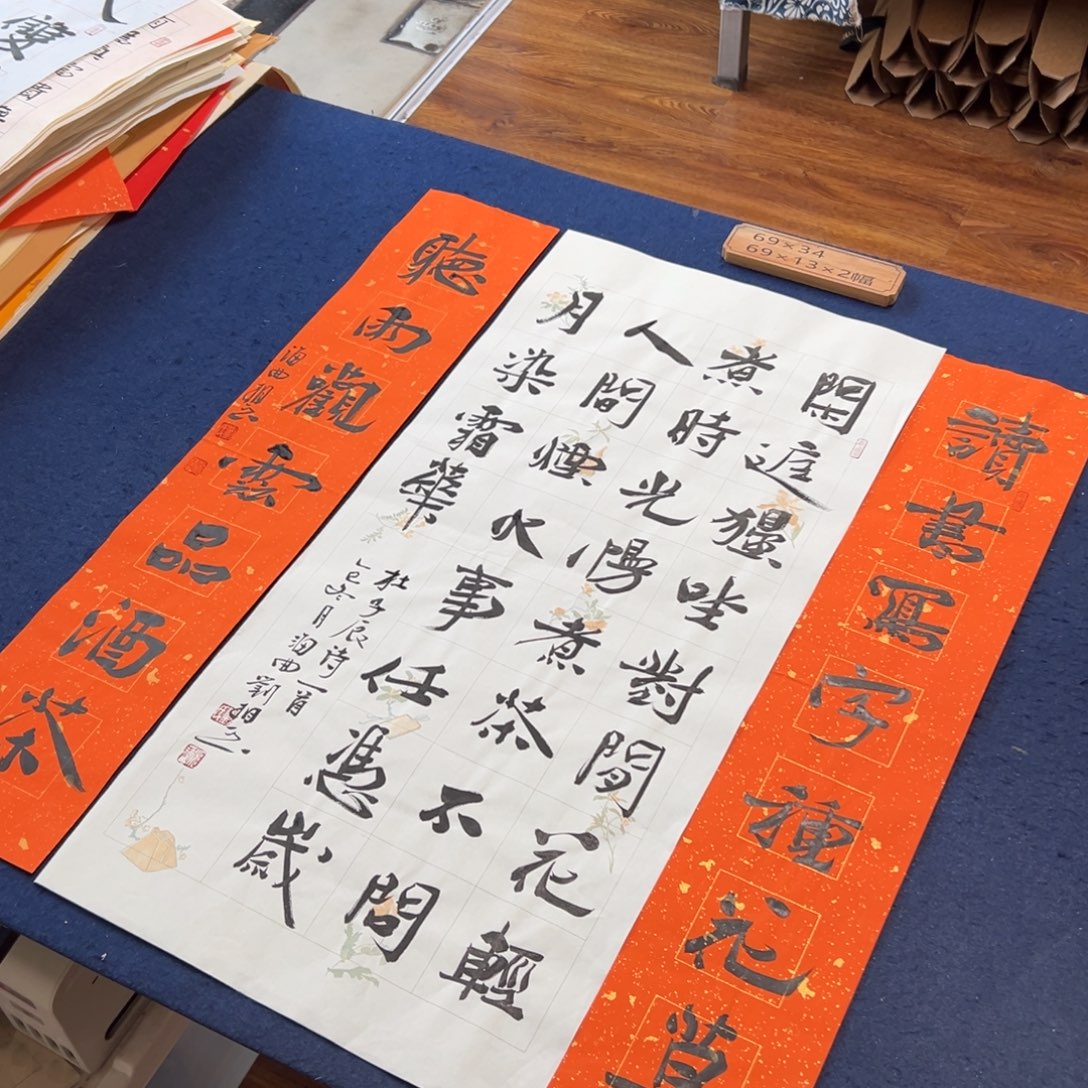 讀書寫字種花草
閑庭獨坐對閒花輕
煮時光慢煮茶不問
人間煙火事任憑歲
月染霜華
詩一首
乙巳冬月海曲劉相
聽雨觀雲品酒茶
海曲相
69×34
69×13×2幅